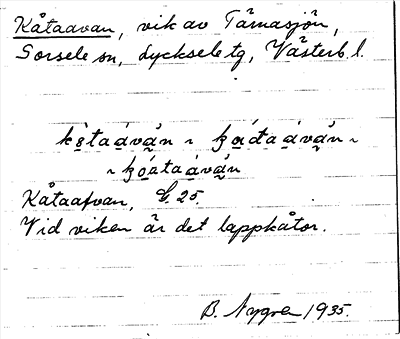 Kåtaavan, vik av Tärnasjön,
Sorsele sn, Lycksele tg, Västerb. l.
kåtaáván ~ kátaáván ~
~ kóátaáván
Kåtaafvan, G. 25.
Vid viken är det lappkåtor.
B. Nygren 1935.